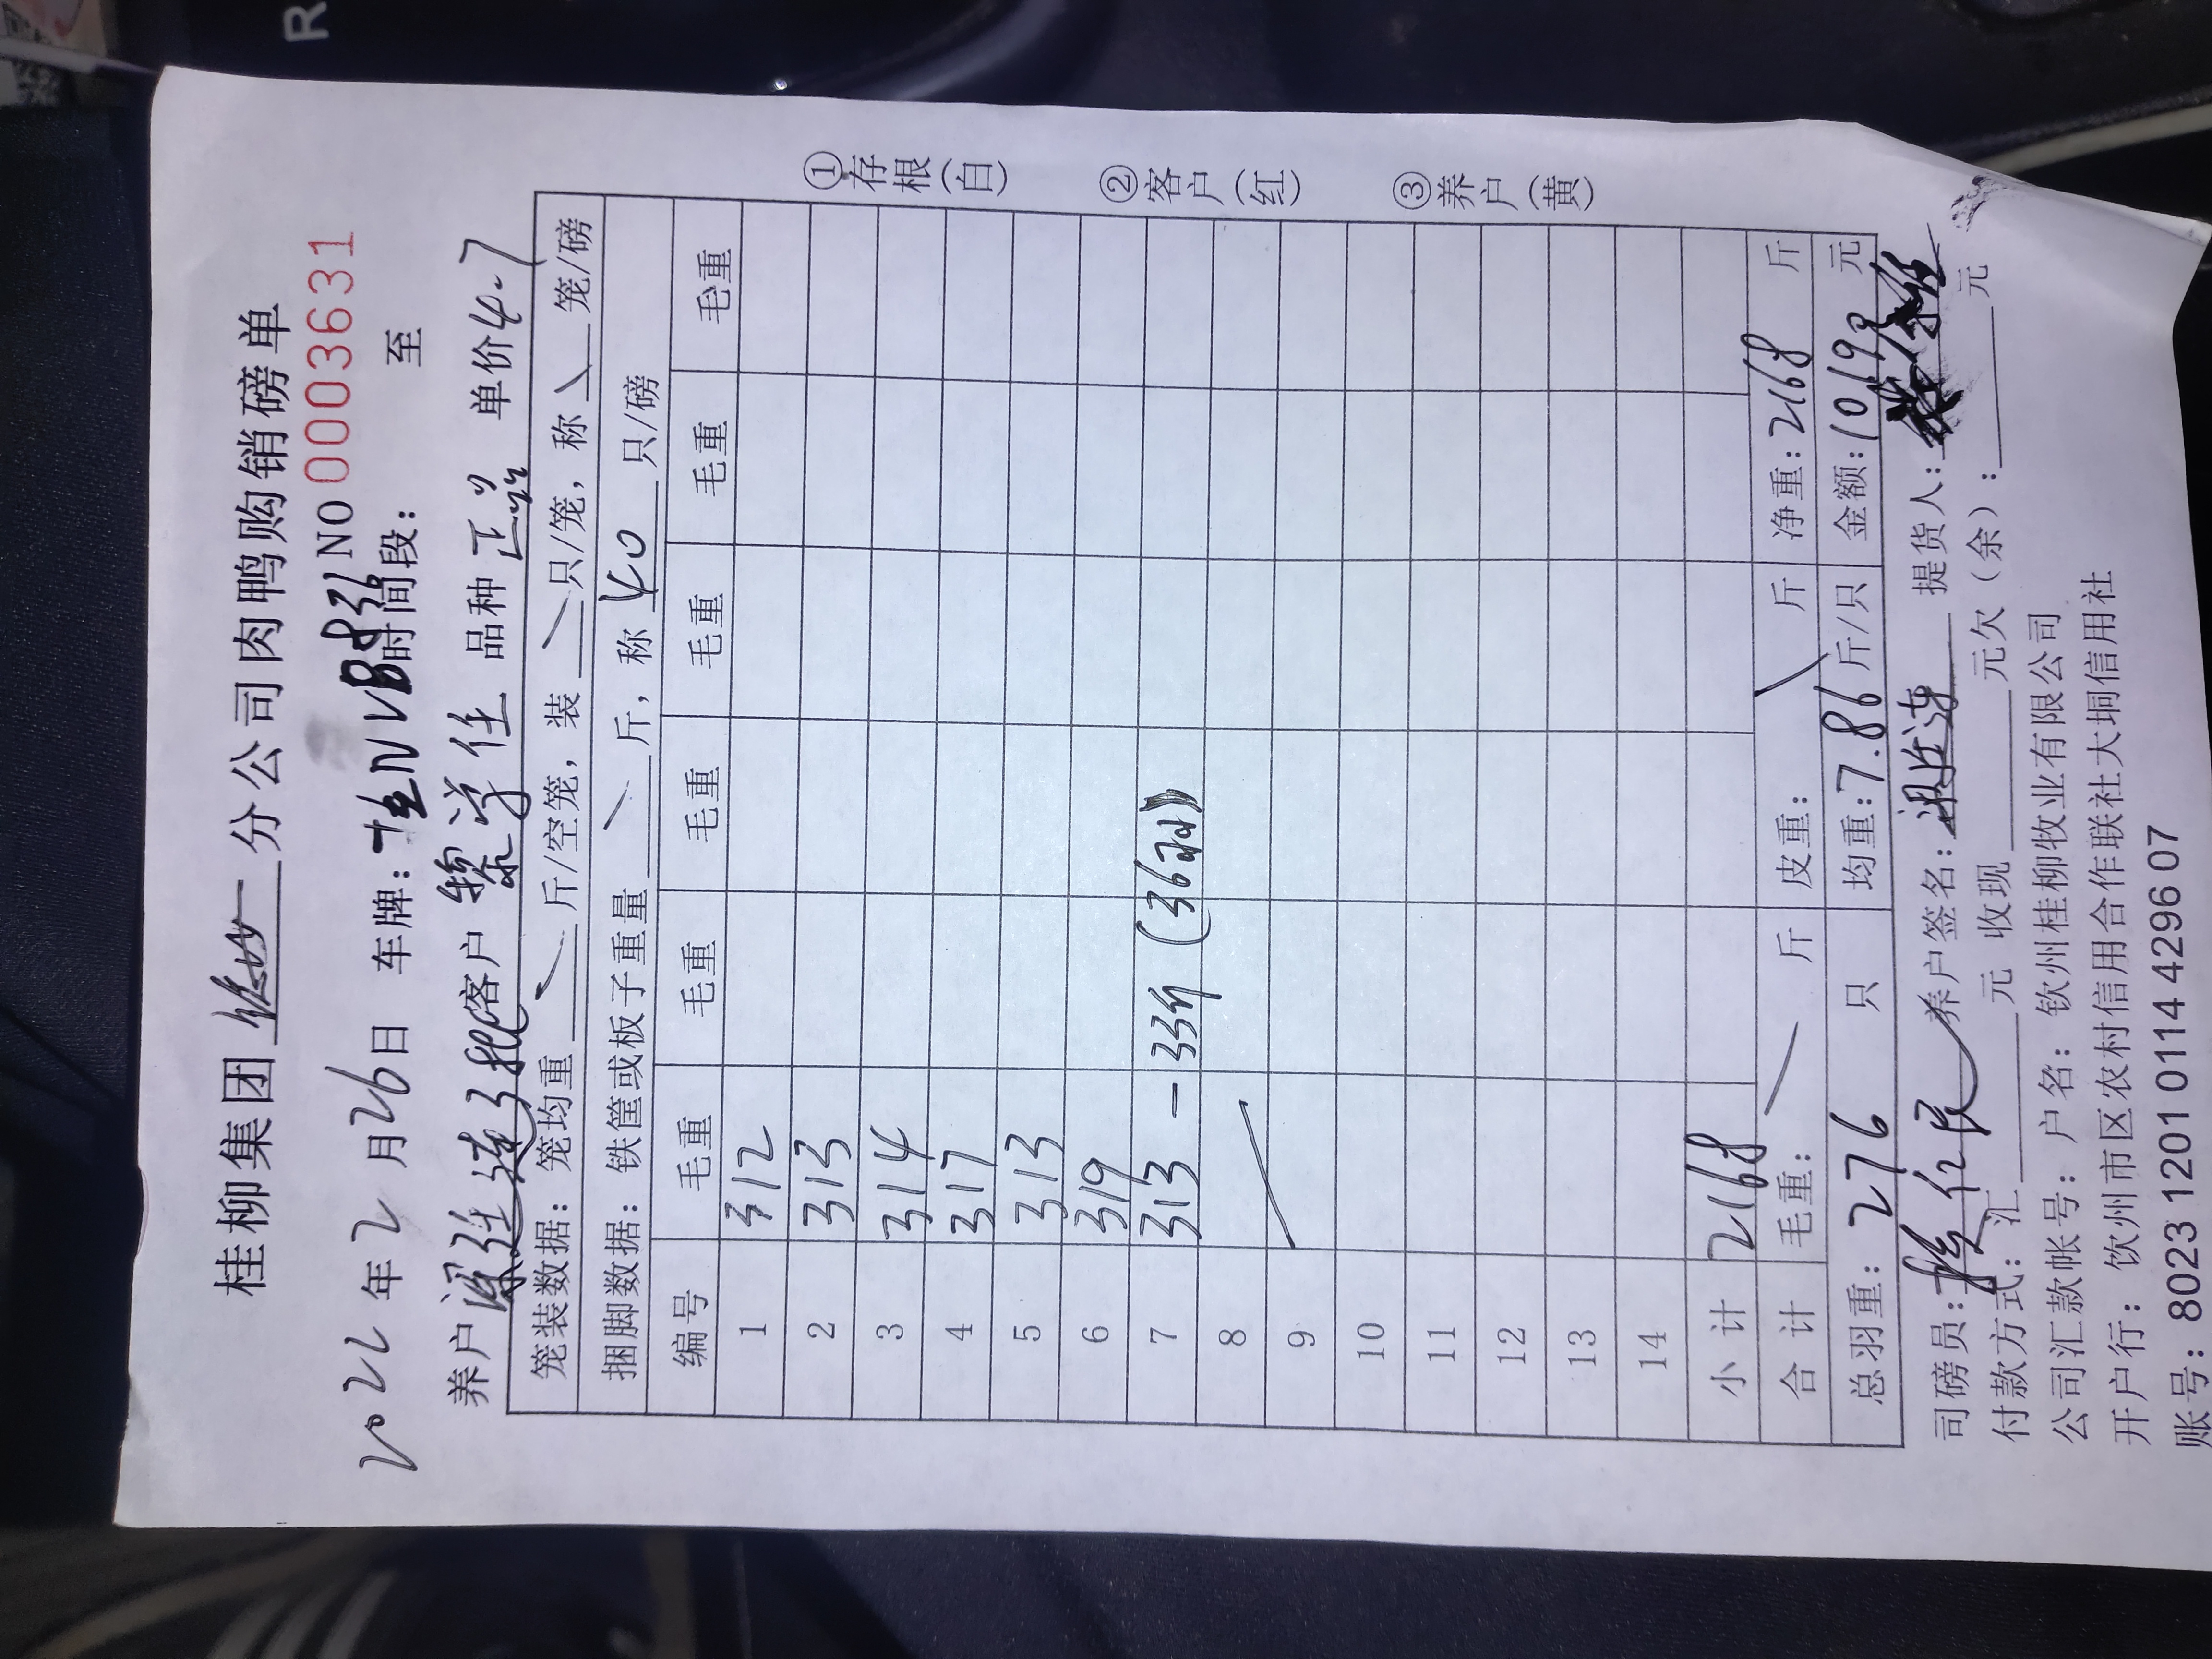 桂柳集团 分公司肉鸭购销磅单
2022年2月26日 车牌: NO 0003631
时间段: 至
养户 客户 黎学仕 品种 正品 单价 4.7
笼装数据: 笼均重 斤/空笼, 装 只/笼, 称 笼/磅
捆脚数据: 铁筐或板子重量 斤, 称 40 只/磅
编号 毛重 毛重 毛重 毛重 毛重 毛重
1 312
2 313
3 314
4 317
5 313
6 319
7 313 - 33斤 (36只)
8
9
10
11
12
13
14
小计 2168
合计 毛重: 斤 皮重: 斤 净重: 2168 斤
总羽重: 276 只 均重: 7.86 斤/只 金额: 10190 元
司磅员: 养户签名: 提货人:
付款方式: 汇 元 收现 元欠(余): 元
公司汇款帐号: 户名: 钦州桂柳牧业有限公司
开户行: 饮州市区农村信用合作联社大垌信用社
账号: 8023 1201 0114 4296 07
①存根(白)
②客户(红)
③养户(黄)
R